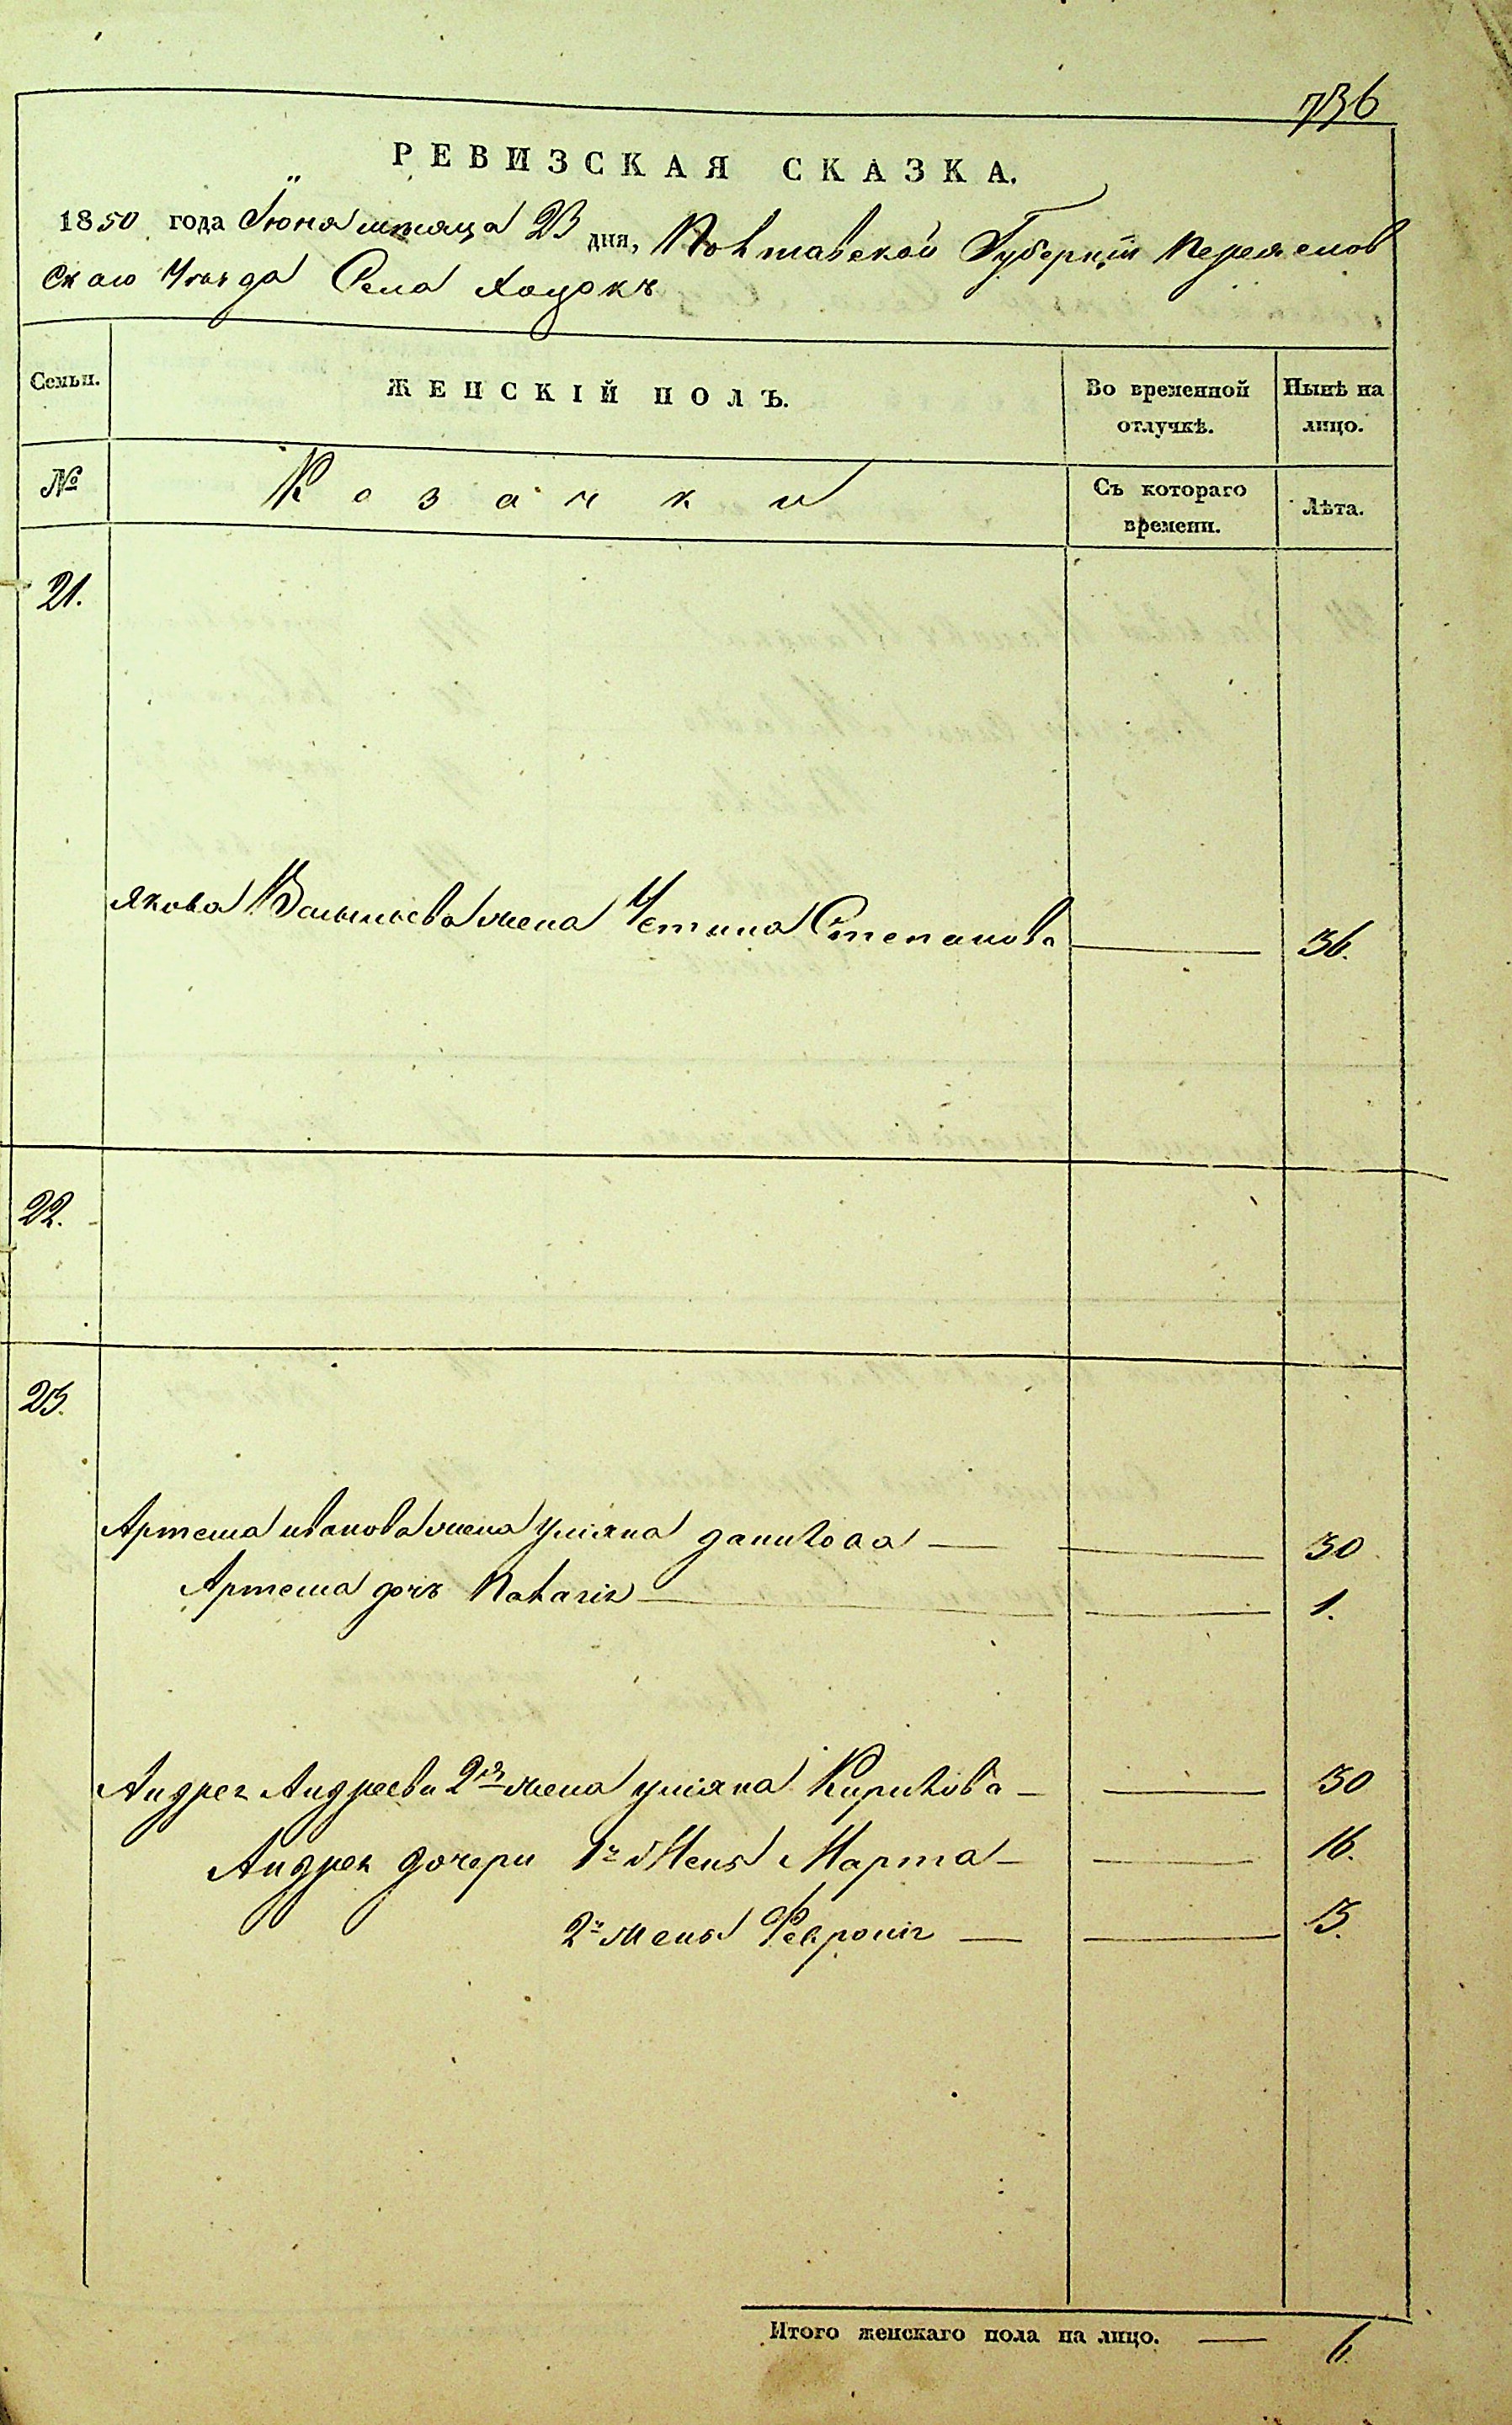 736
РЕВИЗСКАЯ СКАЗКА.
1850 года Іюня мѣсяца 23 дня, Полтавской Губерніи Переяслов
скаго Уѣзда Села Хоцокъ
Семьи. ЖЕНСКІЙ ПОЛЪ. Во временной отлучкѣ. Нынѣ на лицо.
№ Козачки Съ котораго времени. Лѣта.
21.
Якова Васильева жена Устина Степанова — 36.
22.
23.
Артема иванова жена уліяна данилова — 30
Артема дочь Палагія — 1.
Андрея Андреева 2я жена уліяна Кирилова — 30
Андрея дочери 1й жены Марта — 16.
2й жены Февронія — 3.
Итого женскаго пола на лицо. — 6.